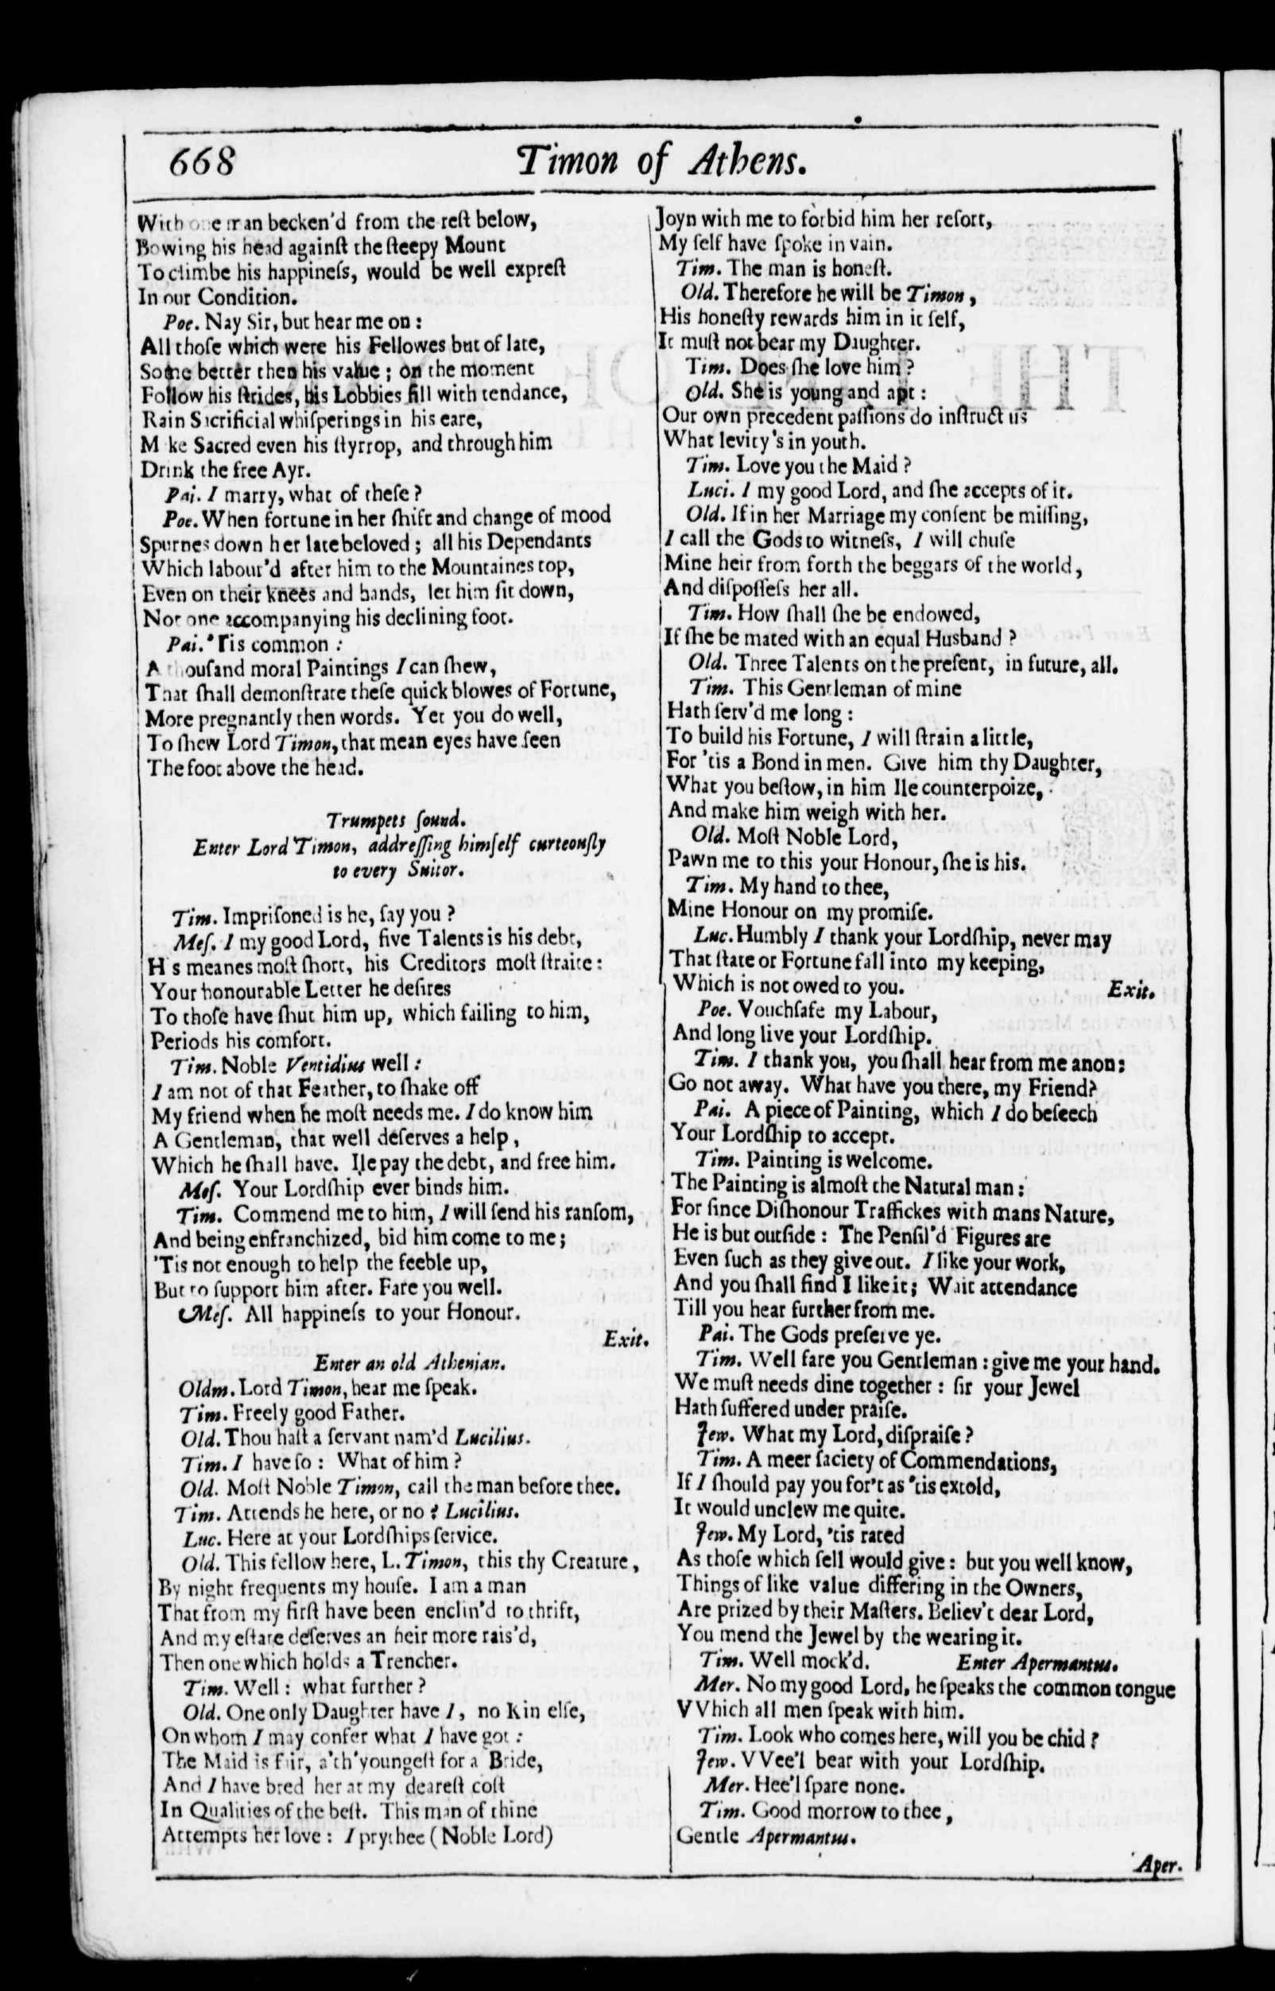 668
Timon of Athens.
With one man becken'd from the reſt below,
Bowing his head againſt the ſteepy Mount
To climbe his happineſs, would be well expreſt
In our Condition.
Poe. Nay Sir, but hear me on :
All thoſe which were his Fellowes but of late,
Some better then his value ; on the moment
Follow his ſtrides, his Lobbies fill with tendance,
Rain Sacrificial whiſperings in his eare,
Make Sacred even his ſtyrrop, and through him
Drink the free Ayr.
Pai. I marry, what of theſe ?
Poe. When fortune in her ſhift and change of mood
Spurnes down her late beloved ; all his Dependants
Which labour'd after him to the Mountaines top,
Even on their knees and hands, let him ſit down,
Not one accompanying his declining foot.
Pai. 'Tis common :
A thouſand moral Paintings I can ſhew,
That ſhall demonſtrate theſe quick blowes of Fortune,
More pregnantly then words. Yet you do well,
To ſhew Lord Timon, that mean eyes have ſeen
The foot above the head.
Trumpets ſound.
Enter Lord Timon, addreſſing himſelf curteouſly
to every Suitor.
Tim. Impriſoned is he, ſay you ?
Meſ. I my good Lord, five Talents is his debt,
H s meanes moſt ſhort, his Creditors moſt ſtraite :
Your honourable Letter he deſires
To thoſe have ſhut him up, which failing to him,
Periods his comfort.
Tim. Noble Ventidius well :
I am not of that Feather, to ſhake off
My friend when he moſt needs me. I do know him
A Gentleman, that well deſerves a help,
Which he ſhall have. Ile pay the debt, and free him.
Meſ. Your Lordſhip ever binds him.
Tim. Commend me to him, I will ſend his ranſom,
And being enfranchized, bid him come to me ;
'Tis not enough to help the feeble up,
But to ſupport him after. Fare you well.
Meſ. All happineſs to your Honour.
Exit.
Enter an old Athenian.
Oldm. Lord Timon, hear me ſpeak.
Tim. Freely good Father.
Old. Thou haſt a ſervant nam'd Lucilius.
Tim. I have ſo : What of him ?
Old. Moſt Noble Timon, call the man before thee.
Tim. Attends he here, or no ? Lucilius.
Luc. Here at your Lordſhips ſervice.
Old. This fellow here, L. Timon, this thy Creature,
By night frequents my houſe. I am a man
That from my firſt have been enclin'd to thrift,
And my eſtate deſerves an heir more rais'd,
Then one which holds a Trencher.
Tim. Well : what further ?
Old. One only Daughter have I, no kin elſe,
On whom I may confer what I have got :
The Maid is fair, a'th'youngeſt for a Bride,
And I have bred her at my deareſt coſt
In Qualities of the beſt. This man of thine
Attempts her love : I prythee (Noble Lord)
Joyn with me to forbid him her reſort,
My ſelf have ſpoke in vain.
Tim. The man is honeſt.
Old. Therefore he will be Timon,
His honeſty rewards him in it ſelf,
It muſt not bear my Daughter.
Tim. Does ſhe love him ?
Old. She is young and apt :
Our own precedent paſſions do inſtruct us
What levity's in youth.
Tim. Love you the Maid ?
Luci. I my good Lord, and ſhe accepts of it.
Old. If in her Marriage my conſent be miſſing,
I call the Gods to witneſs, I will chuſe
Mine heir from forth the beggars of the world,
And diſpoſſeſs her all.
Tim. How ſhall ſhe be endowed,
If ſhe be mated with an equal Husband ?
Old. Three Talents on the preſent, in future, all.
Tim. This Gentleman of mine
Hath ſerv'd me long :
To build his Fortune, I will ſtrain a little,
For 'tis a Bond in men. Give him thy Daughter,
What you beſtow, in him Ile counterpoize,
And make him weigh with her.
Old. Moſt Noble Lord,
Pawn me to this your Honour, ſhe is his.
Tim. My hand to thee,
Mine Honour on my promiſe.
Luc. Humbly I thank your Lordſhip, never may
That ſtate or Fortune fall into my keeping,
Which is not owed to you. Exit.
Poe. Vouchſafe my Labour,
And long live your Lordſhip.
Tim. I thank you, you ſhall hear from me anon :
Go not away. What have you there, my Friend?
Pai. A piece of Painting, which I do beſeech
Your Lordſhip to accept.
Tim. Painting is welcome.
The Painting is almoſt the Natural man :
For ſince Diſhonour Traffickes with mans Nature,
He is but outſide : The Penſil'd Figures are
Even ſuch as they give out. I like your work,
And you ſhall find I like it ; Wait attendance
Till you hear further from me.
Pai. The Gods preſerve ye.
Tim. Well fare you Gentleman : give me your hand.
We muſt needs dine together : ſir your Jewel
Hath ſuffered under praiſe.
Jew. What my Lord, diſpraiſe ?
Tim. A meer ſaciety of Commendations,
If I ſhould pay you for't as 'tis extold,
It would unclew me quite.
Jew. My Lord, 'tis rated
As thoſe which ſell would give : but you well know,
Things of like value differing in the Owners,
Are prized by their Maſters. Believ't dear Lord,
You mend the Jewel by the wearing it.
Tim. Well mock'd. Enter Apermantus.
Mer. No my good Lord, he ſpeaks the common tongue
VVhich all men ſpeak with him.
Tim. Look who comes here, will you be chid ?
Jew. VVee'l bear with your Lordſhip.
Mer. Hee'l ſpare none.
Tim. Good morrow to thee,
Gentle Apermantus.
Aper.